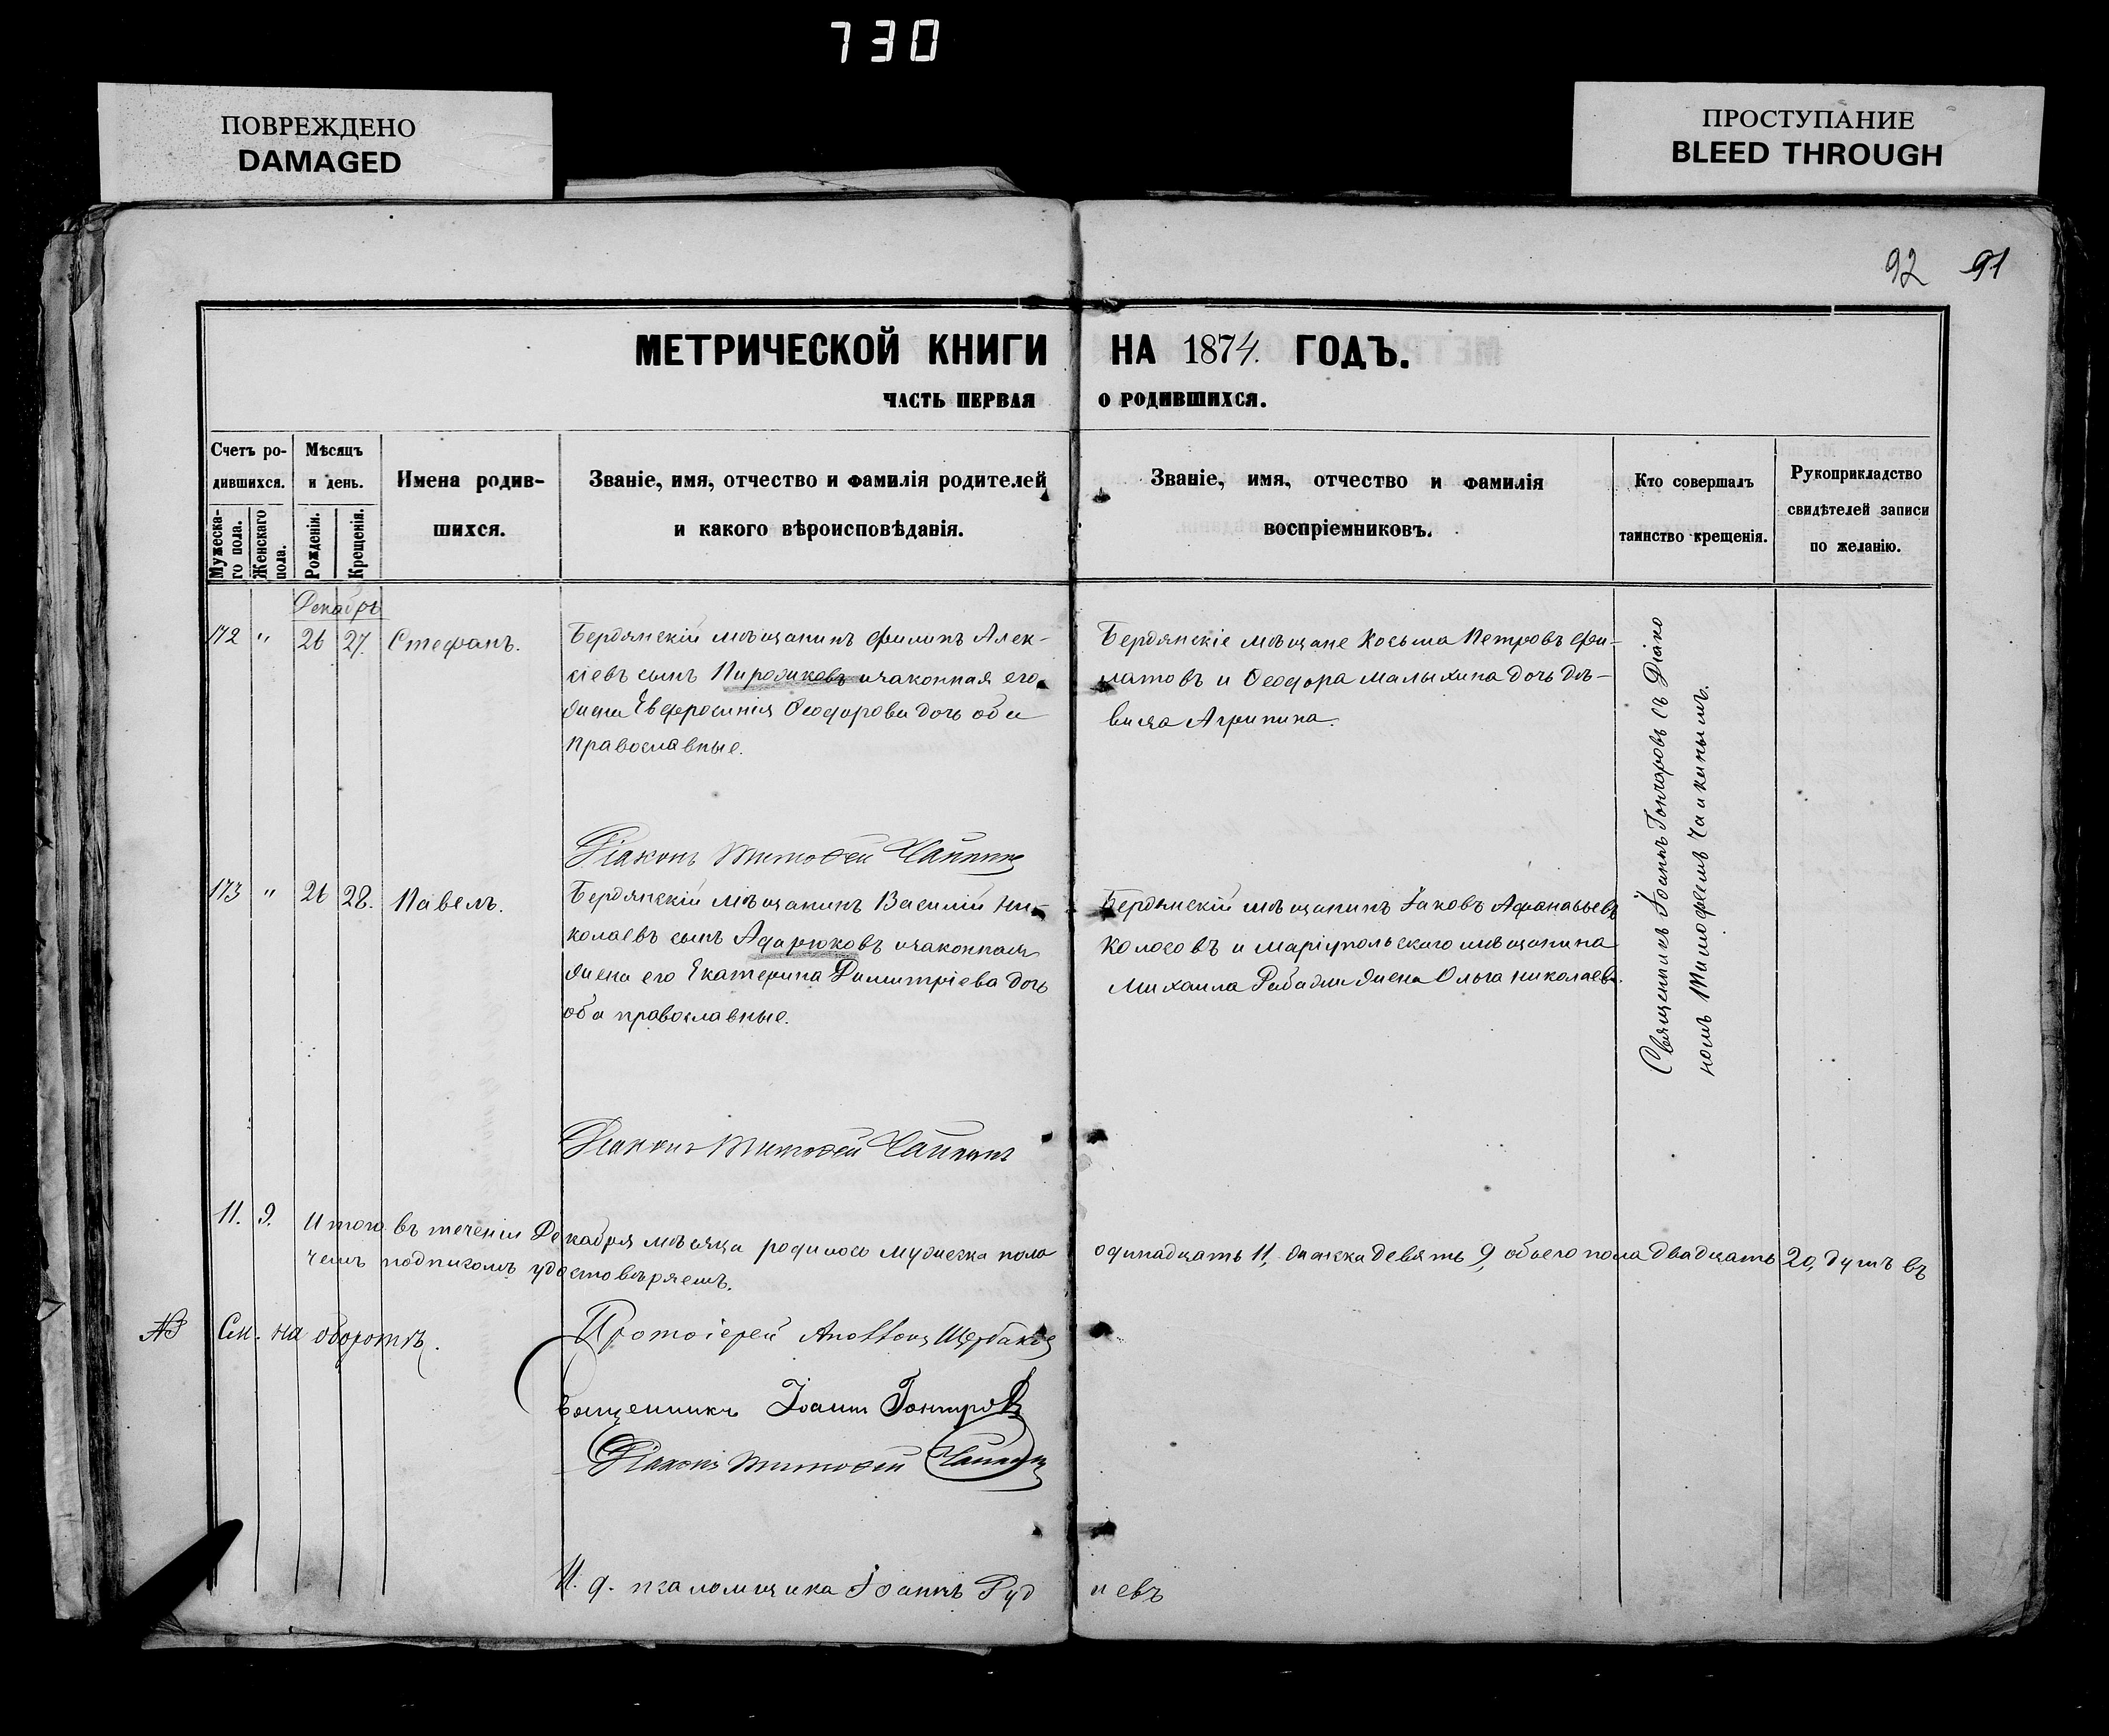 730
ПОВРЕЖДЕНО
DAMAGED
ПРОСТУПАНИЕ
BLEED THROUGH
92 91
МЕТРИЧЕСКОЙ КНИГИ НА 1874. ГОДЪ.
ЧАСТЬ ПЕРВАЯ О РОДИВШИХСЯ.
Счетъ ро-
дившихся.
Мужеска-
го пола.
Женскаго
пола.
Мѣсяцъ
и день.
Рожденія.
Крещенія.
Имена родив-
шихся.
Званіе, имя, отчество и фамилія родителей
и какого вѣроисповѣданія.
Званіе, имя, отчество и фамилія
воспріемниковъ.
Кто совершалъ
таинство крещенія.
Рукоприкладство
свидѣтелей записи
по желанію.
Декабрь
172 " 26 27. Стефанъ.
Бердянскій мѣщанинъ Филипъ Алек-
сіевъ сынъ изаконная его
жена Евфросинія Ѳеодорова дочь оба
православные.
Бердянскіе мѣщане Косьма Петровъ Фи-
латовъ и Ѳеодора Малыхина дочь дѣ-
вица Агрипина.
Священникъ Іоаннъ Гончаровъ съ Діако
номъ Тимофеемъ Чайкинымъ.
Діаконъ Тимоѳей Чайкинъ
173 " 26 28. Павелъ.
Бердянскій мѣщанинъ Василій Ни-
колаевъ сынъ Адарюковъ изаконная
жена его Екатерина Димитріева дочь
оба православные.
Бердянскій мѣщанинъ Іаковъ Афанасьевъ
Колосовъ и маріупольскаго мѣщанина
Михаила жена Ольга Николаева.
Діаконъ Тимоѳей Чайкинъ
11. 9. Итого въ теченіи Декабря мѣсяца родилось мужеска пола одинадцать 11, женска девять 9, обоего пола двадцать 20, душъ въ
чемъ подписомъ удостовѣряемъ.
См. на оборотѣ.
Протоіерей Аполлонъ Щербаковъ
Священникъ Іоаннъ Гончаровъ
Діаконъ Тимоѳей Чайкинъ
И. д. псаломщика Іоаннъ Рудневъ